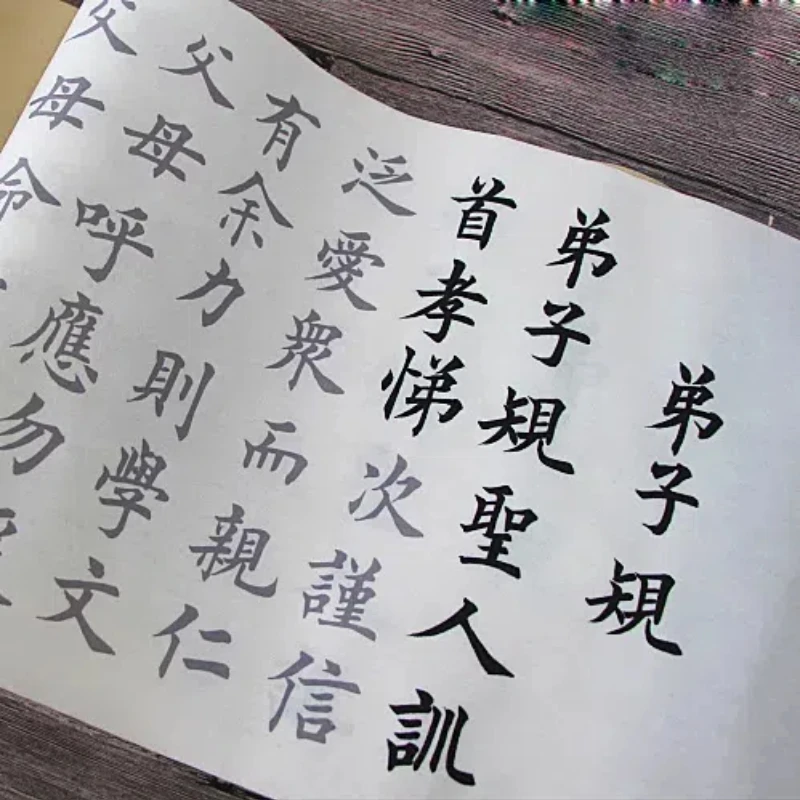 弟子規
弟子規聖人訓
首孝悌次謹信
泛愛衆而親仁
有余力則學文
父母呼應勿
父母命